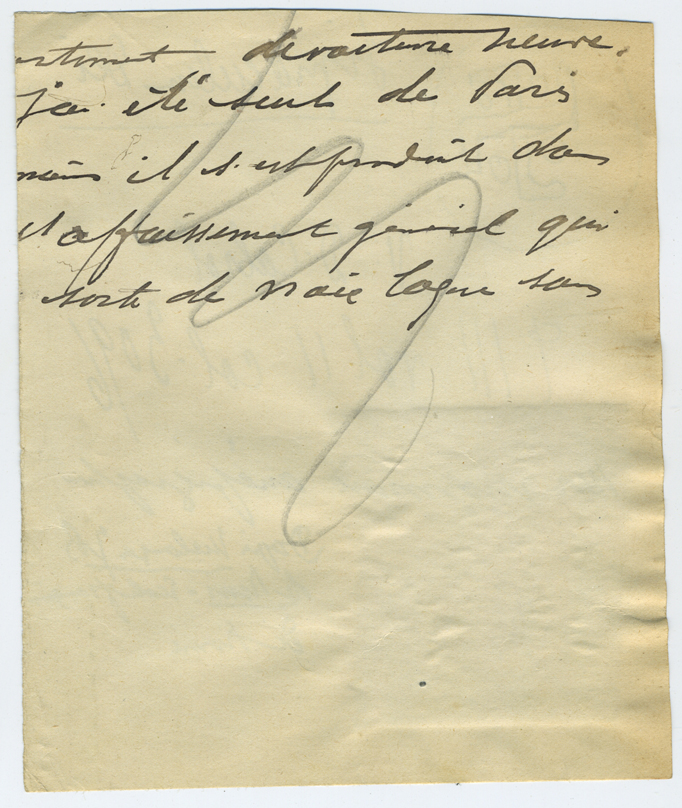 artiment devoiture heure.
j'ai été seul de Paris
mais il s'est produit dans
affaissement général qui
sorte de vraie loque sans